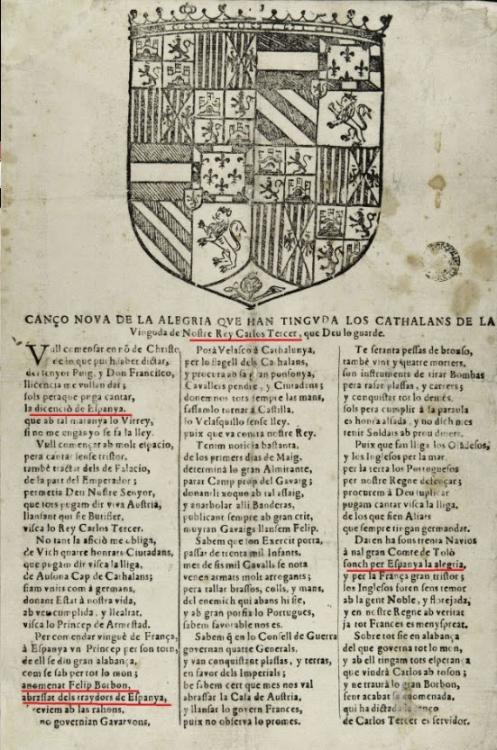 CANÇO NOVA DE LA ALEGRIA QVE HAN TINGVDA LOS CATHALANS DE LA
Vinguda de Nostre Rey Carlos Tercer, que Deu lo guarde.
Vull comensar en nõ de Christo,
de lenyor Puig, y Don Francisco,
llicencia me vullan dar;
sols peraque puga cantar,
la dicenció de Espanya,
que ab tal maranya lo Virrey,
si no me engas yo se fa la lley.
Vull començar ab molt espacio,
pera cantar sense tristor,
també tractar dels de Palacio,
de la part del Emperador;
permetia Deu Nostre Senyor,
que tots pugam dir viva Austria,
llansant que fie Butifler,
visca lo Rey Carlos Tercer.
No tant la afició me obliga,
de Vich quatre honrats Ciutadans,
que pugam dir visca la lliga,
de Ausona Cap de Cathalans;
siam vnits com á germans,
donant Estat à nostra vida,
ab veu cumplida, y llealtat,
visca lo Princep de Armestad.
Per comendar vingué de França,
à Espanya vn Princep per son tom,
de ell se diu gran alabança,
com se sab per tot lo mon;
anomenat Felip Borbon,
abrassat dels traydors de Espanya,
reviem ab las rahons,
no governian Gavarvons,
Posà Velasco à Cathalunya,
per lo flagell dels Cathalans,
y procura ab sa gran ponsonya,
Cavallers pendre, y Ciutadans;
donem nos tots sempre las mans,
fassamlo tornar à Castilla,
lo Velasquillo sense lley,
puix que va contra nostre Rey.
Tenim noticia bastanta,
de los primers dias de Maig,
determinà lo gran Almirante,
parar Camp prop del Gavaig;
donarli xoque ab tal assaig,
y anarbolar alli Banderas,
publicant sempre ab gran crit,
muyran Gavaigs llansem Felip.
Sabem que son Exercit porta,
passar de trenta mil Infants,
mes de sis mil Cavalls se nota
venen armats molt arrogants;
pera tallar brassos, colls, y mans,
del enemich qui abans hi sie,
y ab gran porfia lo Portugues,
sabem savorable nos es.
Sabem q̃ en lo Consell de Guerra
governan quatre Generals,
y van conquistant plassas, y terras,
en favor dels Imperials;
be sabem cert que mes nos val
abrassar la Casa de Austria,
y llansar lo govern Frances,
puix no observa lo promes.
Te setanta pessas de bronso,
també vint y quatre morters,
son instruments de tirar Bombas
pera rasar plassas, y carrers;
y conquistar tot lo demés,
sols pera cumplir à sa paraula
es honra assalada, y no dich mes
tenir Soldats ab prou diners.
Puix que fan lliga los Olãdesos,
y los Inglesos per la mar,
per la terra los Portuguesos
per nostre Regne defençar;
procurem à Deu suplicar
pugam cantar visca la lliga,
de los que sien Aliats
que sempre tirgan germandat.
Daten ha sons trenta Navios
à nal gran Comte de Tolò
sonch per Espanya la alegria,
y per la França gran tristor;
los Inglesos foren sens temor
ab la gent Noble, y florejada,
y en nostre Regne ab veritat
ja tot Frances es menyspreat.
Sobre tot sie en alabança
del que governa tot lo mon,
y ab ell tingam tots esperança
que vindrà Carlos ab tohom;
y ne traurà lo gran Borbon,
sent acabat sa comensada,
qui ha dictada la canço
de Carlos Tercer es servidor.